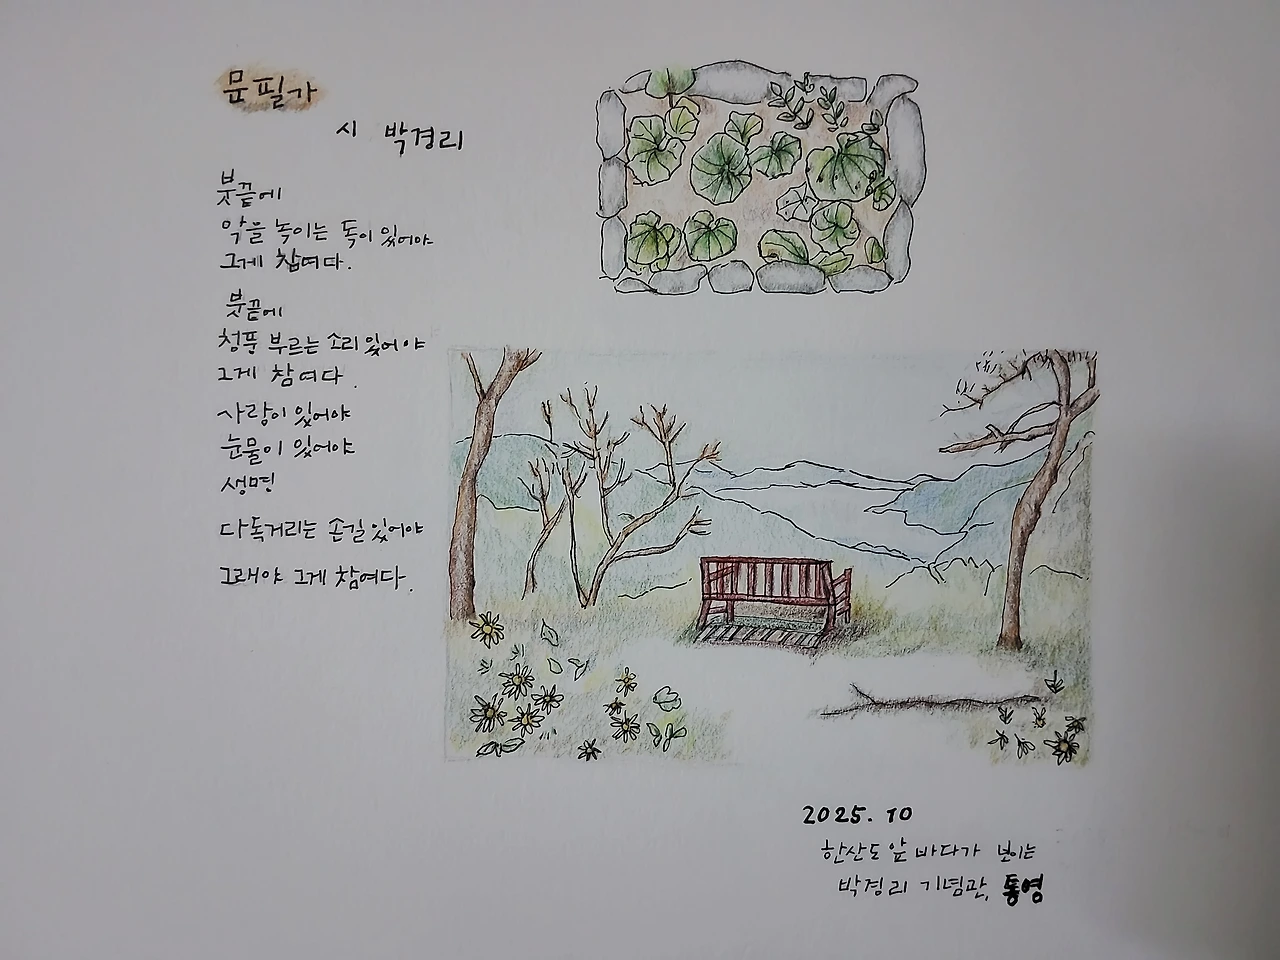 문필가
시 박경리
붓끝에
악을 녹이는 독이 있어야
그게 참여다.
붓끝에
청풍 부르는 소리 있어야
그게 참여다.
사랑이 있어야
눈물이 있어야
생명
다독거리는 손길 있어야
그래야 그게 참여다.
2025. 10
한산도 앞 바다가 보이는
박경리 기념관, 통영